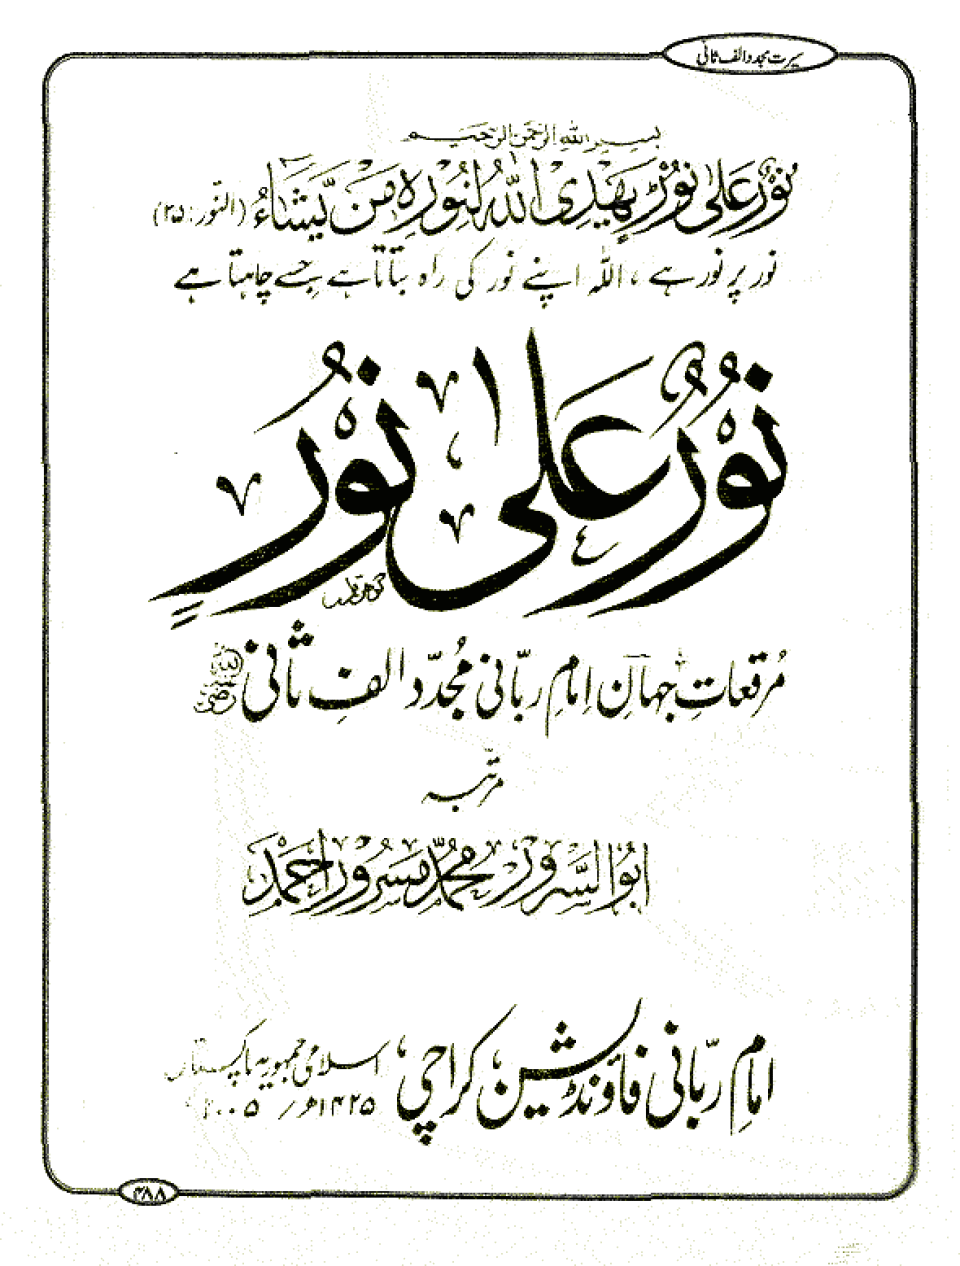 سیرت مجدد الف ثانی
بسم اللہ الرحمن الرحیم
نُوْرٌ عَلٰی نُوْرٍ یَهْدِی اللّٰهُ لِنُوْرِهٖ مَنْ یَّشَآءُ (النّور: ۳۵)
نور پر نور ہے ، اللہ اپنے نور کی راہ بتاتا ہے جسے چاہتا ہے
نُوْرٌ عَلٰی نُوْرٍ
گوهر قلم
مُرقعاتِ جہانِ اِمامِ ربّانی مُجدّد الفِ ثانی رضی اللہ عنہ
مرتبہ
ابُو السّرور محمّد مسرور احمد
امامِ ربّانی فاؤنڈیشن، کراچی،
اسلامی جمہوریہ پاکستان
۱۴۲۵ھ / ۲۰۰۵ء
۴۸۸